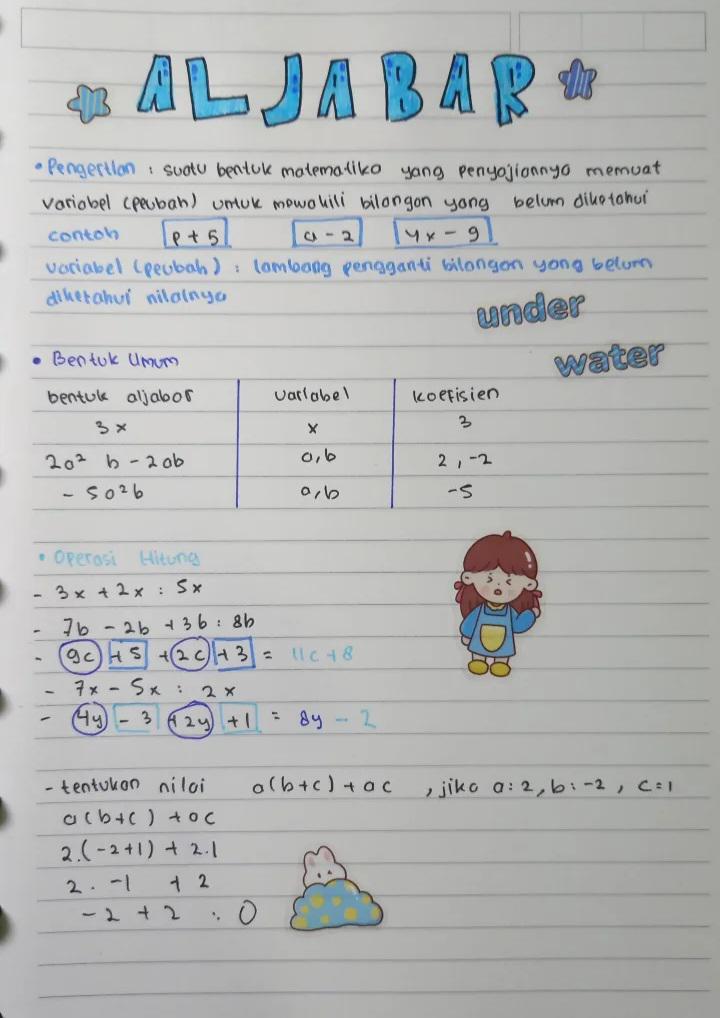 ALJABAR
• Pengertian : suatu bentuk matematika yang penyajiannya memuat
variabel (peubah) untuk mewakili bilangan yang belum diketahui
contoh p + 5 a - 2 4x - 9
variabel (peubah) : lambang pengganti bilangan yang belum
diketahui nilainya
under
water
• Bentuk Umum
bentuk aljabar variabel koefisien
3x x 3
2a² b - 2ab a,b 2, -2
- 5a²b a,b -5
• Operasi Hitung
- 3x + 2x : 5x
- 7b - 2b + 3b : 8b
- 9c + 5 + 2c + 3 = 11c + 8
- 7x - 5x : 2x
- 4y - 3 + 2y + 1 = 8y - 2
- tentukan nilai a(b+c) + ac , jika a: 2, b: -2, c=1
a(b+c) + ac
2.(-2+1) + 2.1
2. -1 + 2
-2 + 2 : 0